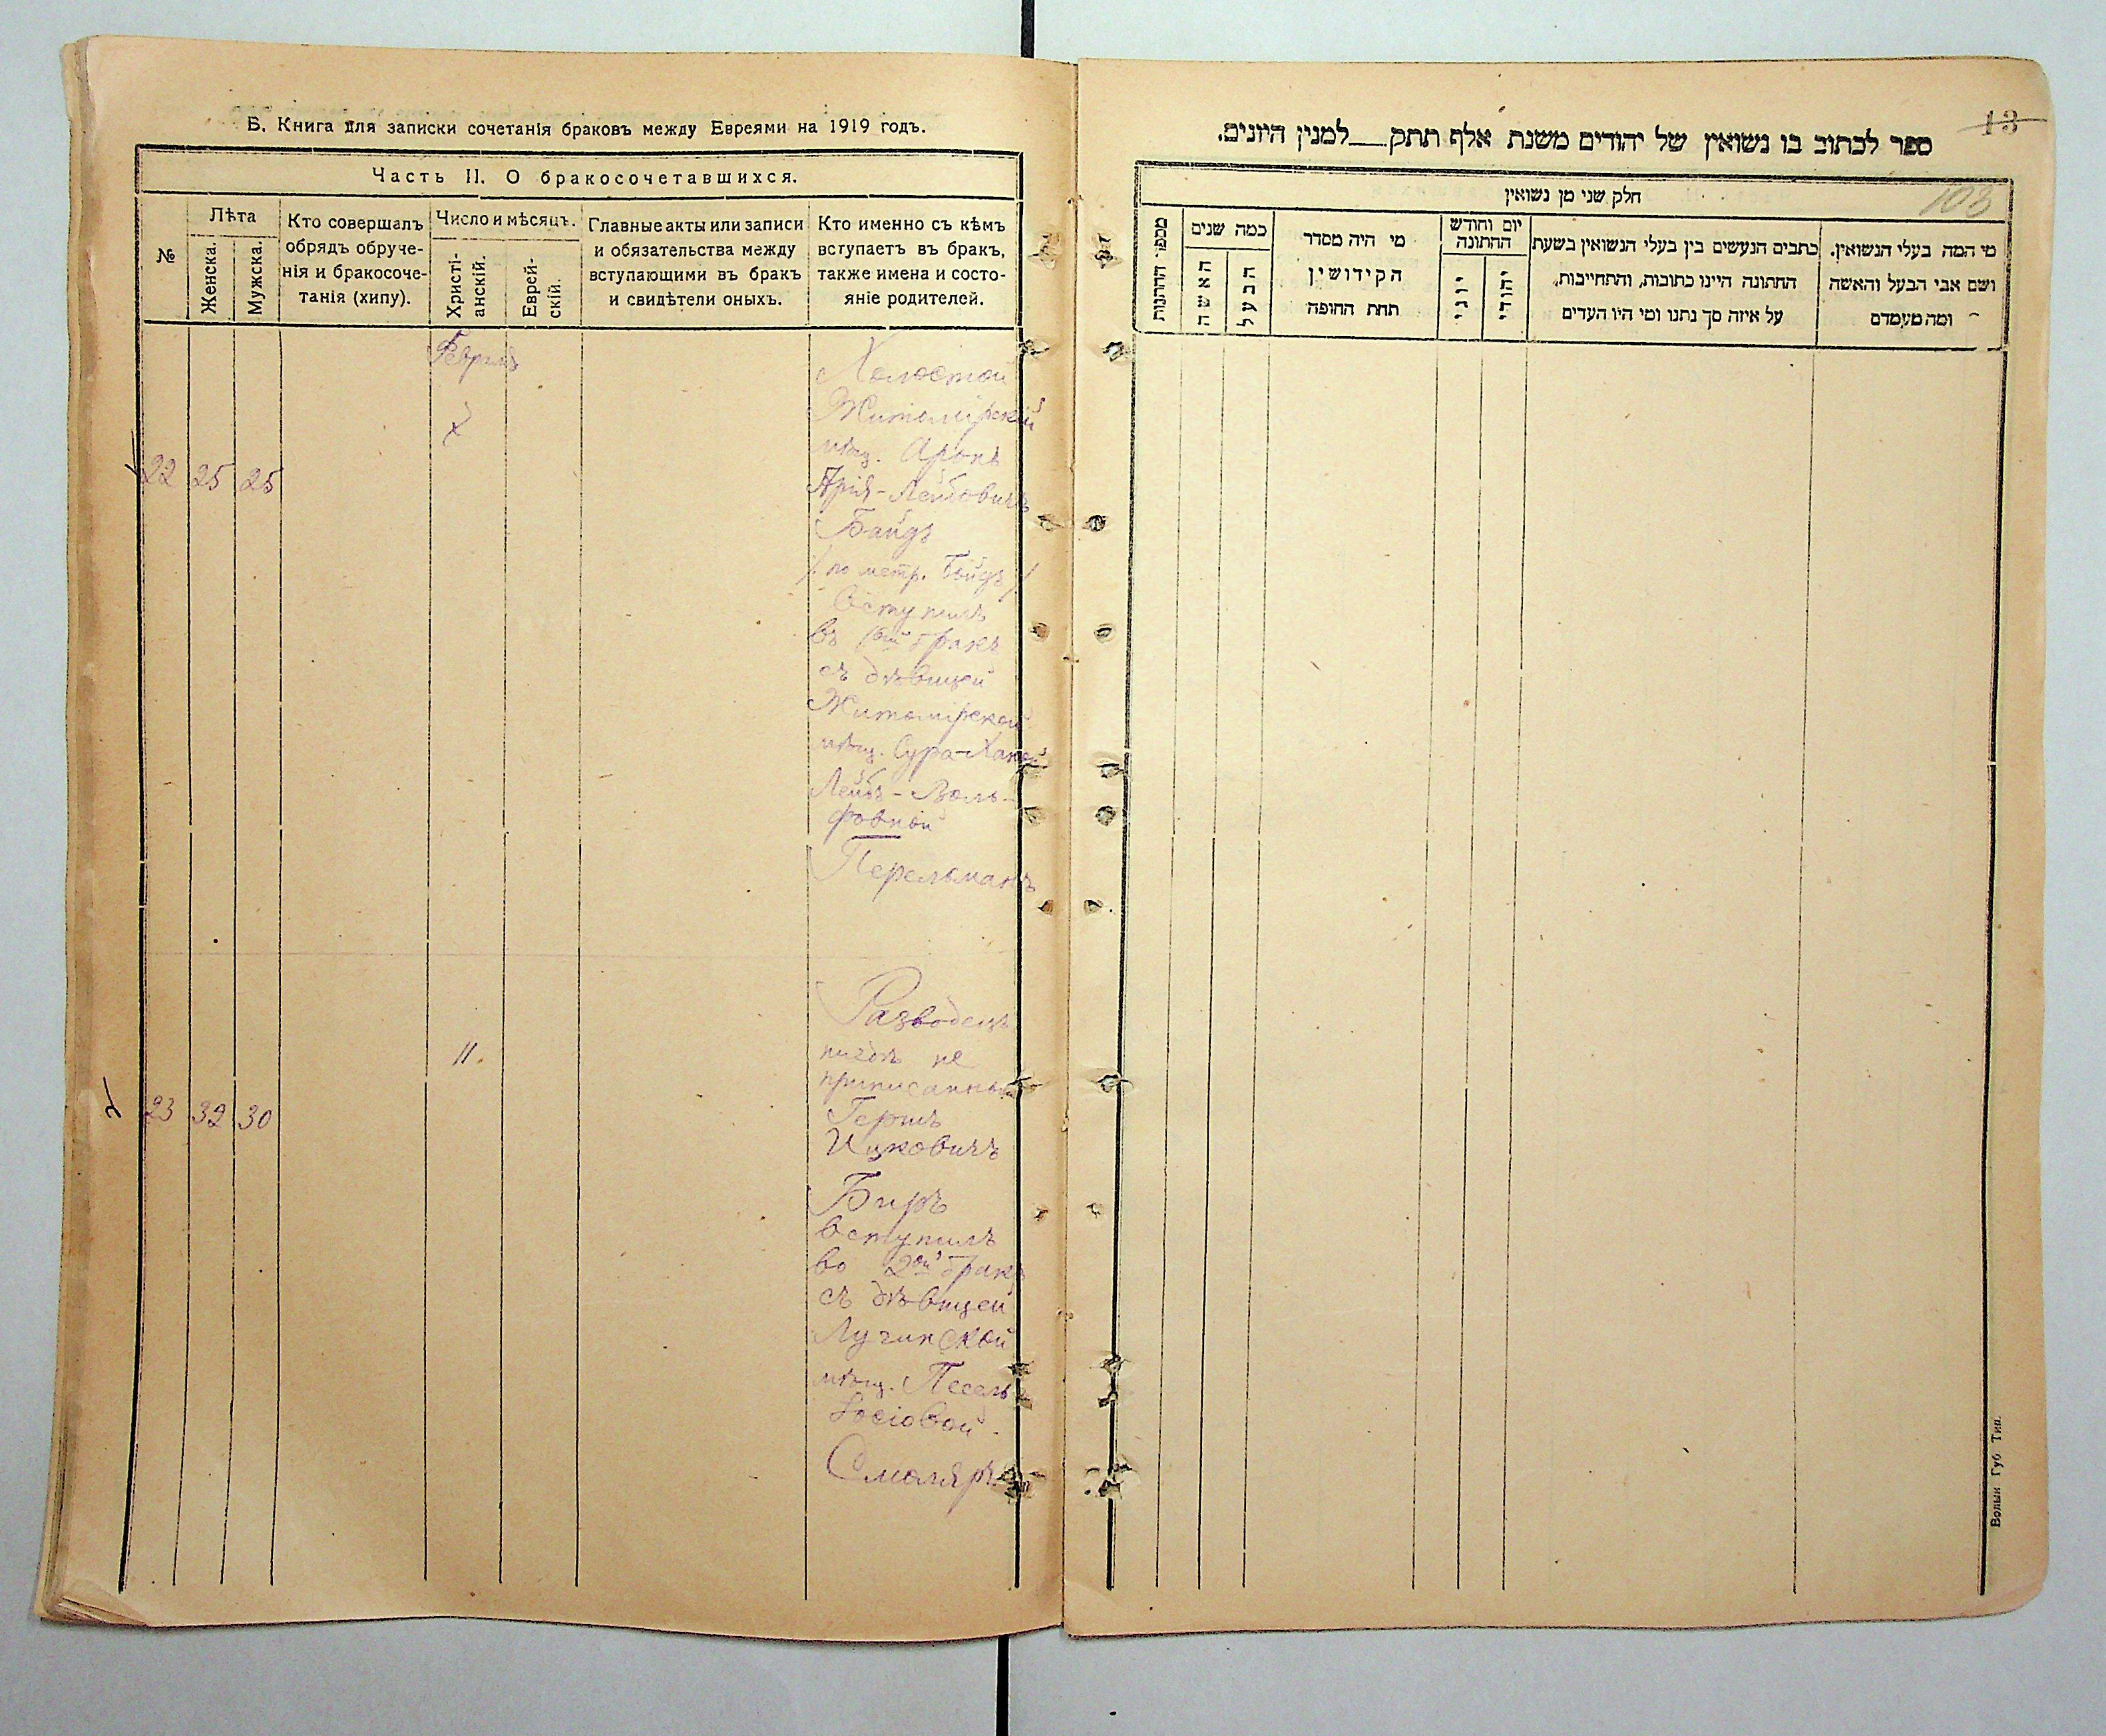 Б. Книга для записки сочетанія браковъ между Евреями на 1919 годъ.
Часть II. О бракосочетавшихся.
№
Лѣта
Женска.
Мужска.
Кто совершалъ
обрядъ обруче-
нія и бракосоче-
танія (хипу).
Число и мѣсяцъ.
Христі-
анскій.
Еврей-
скій.
Главные акты или записи
и обязательства между
вступающими въ бракъ
и свидѣтели оныхъ.
Кто именно съ кѣмъ
вступаетъ въ бракъ,
также имена и состо-
яніе родителей.
Февраль
22 25 25
Холостой
Житомірскій
мѣщ. Аронъ
Арій-Лейбовичъ
Байдъ
/по метр. Бойдъ/
Вступилъ
въ 1ый бракъ
съ дѣвицей
Житомірской
мѣщ. Сура-Ханой
Лейбъ-Воль-
фовной
Перельманъ
23 32 30
11.
Разводецъ
нигдѣ не
приписанный
Гершъ
Ицковичъ
Биръ
вступилъ
во 2ой бракъ
съ дѣвицей
Лугинской
мѣщ. Песель
Іосіовой
Смоляръ
13
103
ספר לכתוב בו נשואין של יהודים משנת אלף תתק___למנין היונים.
חלק שני מן נשואין
מספר החתונות
כמה שנים
האשה
הבעל
מי היה מסדר
הקידושין
תחת החופה
יום וחודש
החתונה
יוני
יהודי
כתבים הנעשים בין בעלי הנשואין בשעת
החתונה היינו כתובות, והתחייבות,
על איזה סך נתנו ומי היו העדים
מי המה בעלי הנשואין.
ושם אבי הבעל והאשה
ומה מעמדם
Волын Губ Тип.